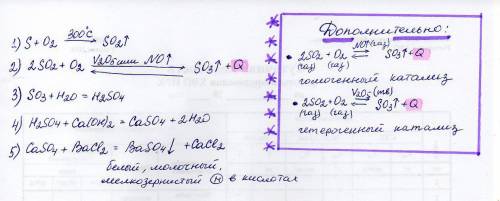 1) S + O2 300°C → SO2↑
2) 2SO2 + O2 V2O5 или NO↑ ⇄ SO3↑ + Q
3) SO3 + H2O = H2SO4
4) H2SO4 + Ca(OH)2 = CaSO4 + 2H2O
5) CaSO4 + BaCl2 = BaSO4↓ + CaCl2
белый, молочный,
мелкозернистый Ⓗ в кислотах
Дополнительно:
• 2SO2 + O2 NO↑(газ) ⇄ SO3↑ + Q
(газ) (газ)
гомогенный катализ
• 2SO2 + O2 V2O5(тв) ⇄ SO3↑ + Q
(газ) (газ)
гетерогенный катализ